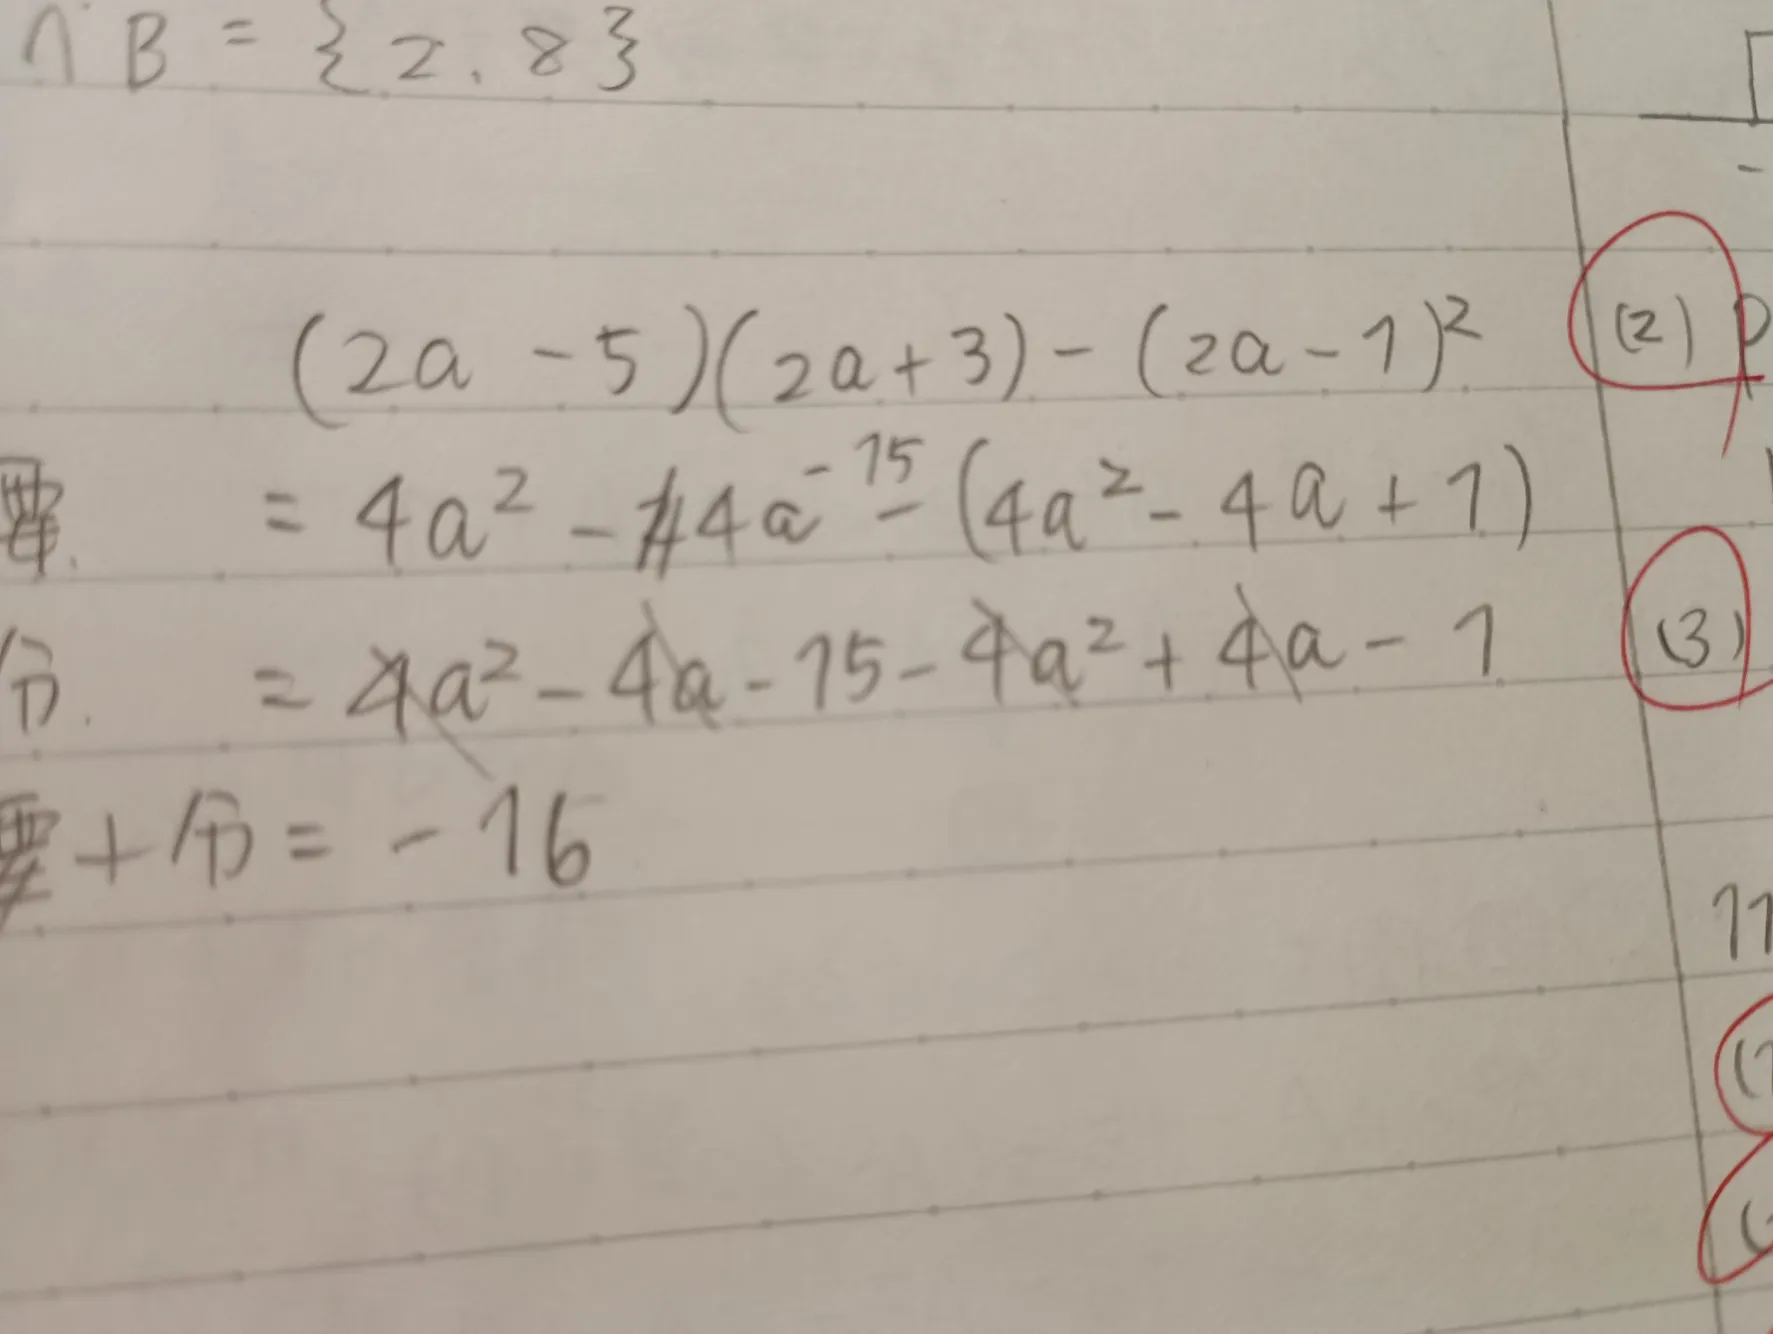 ∩ B = {2, 8}
(2a - 5)(2a + 3) - (2a - 1)²
(2) P
= 4a² - 4a - 15 - (4a² - 4a + 1)
= 4a² - 4a - 15 - 4a² + 4a - 1
(3)
要 + 分 = - 16
11